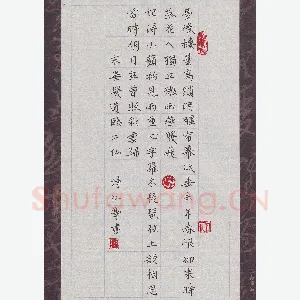 夢後樓臺高鎖酒醒簾幕低垂去年春恨卻來時
落花人獨立微雨燕雙飛
記得小蘋初見兩重心字羅衣琵琶弦上說相思
當時明月在曾照彩雲歸
宋晏幾道臨江仙
Shufawang.CN